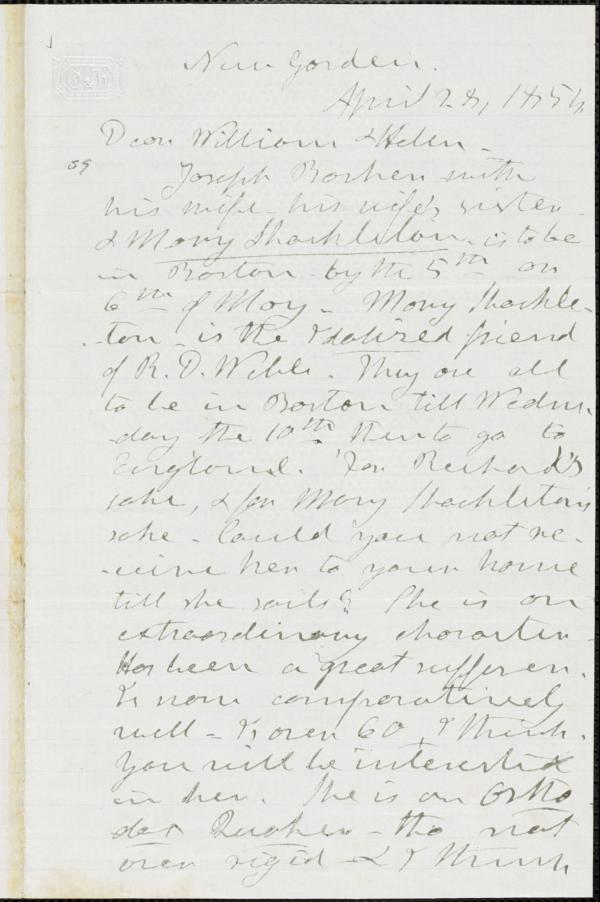 New Garden.
April 28, 1854
Dear William & Helen -
Joseph Barker with
his wife - his wife's sister
& Mary Shackleton - is to be
in Boston by the 5th or
6th of May - Mary Shackle-
ton - is the idolized friend
of R. D. Webb. They are all
to be in Boston till Wednes-
-day the 10th. then to go to
England. For Richard's
sake, & for Mary Shackleton's
sake - Could you not re-
-ceive her to your home
till she sails? She is an
extraordinary character -
Has been a great sufferer.
Is now comparatively
well - Is over 60, I think.
You will be interested
in her. She is an Ortho
dox Quaker - tho not
over rigid - & I think